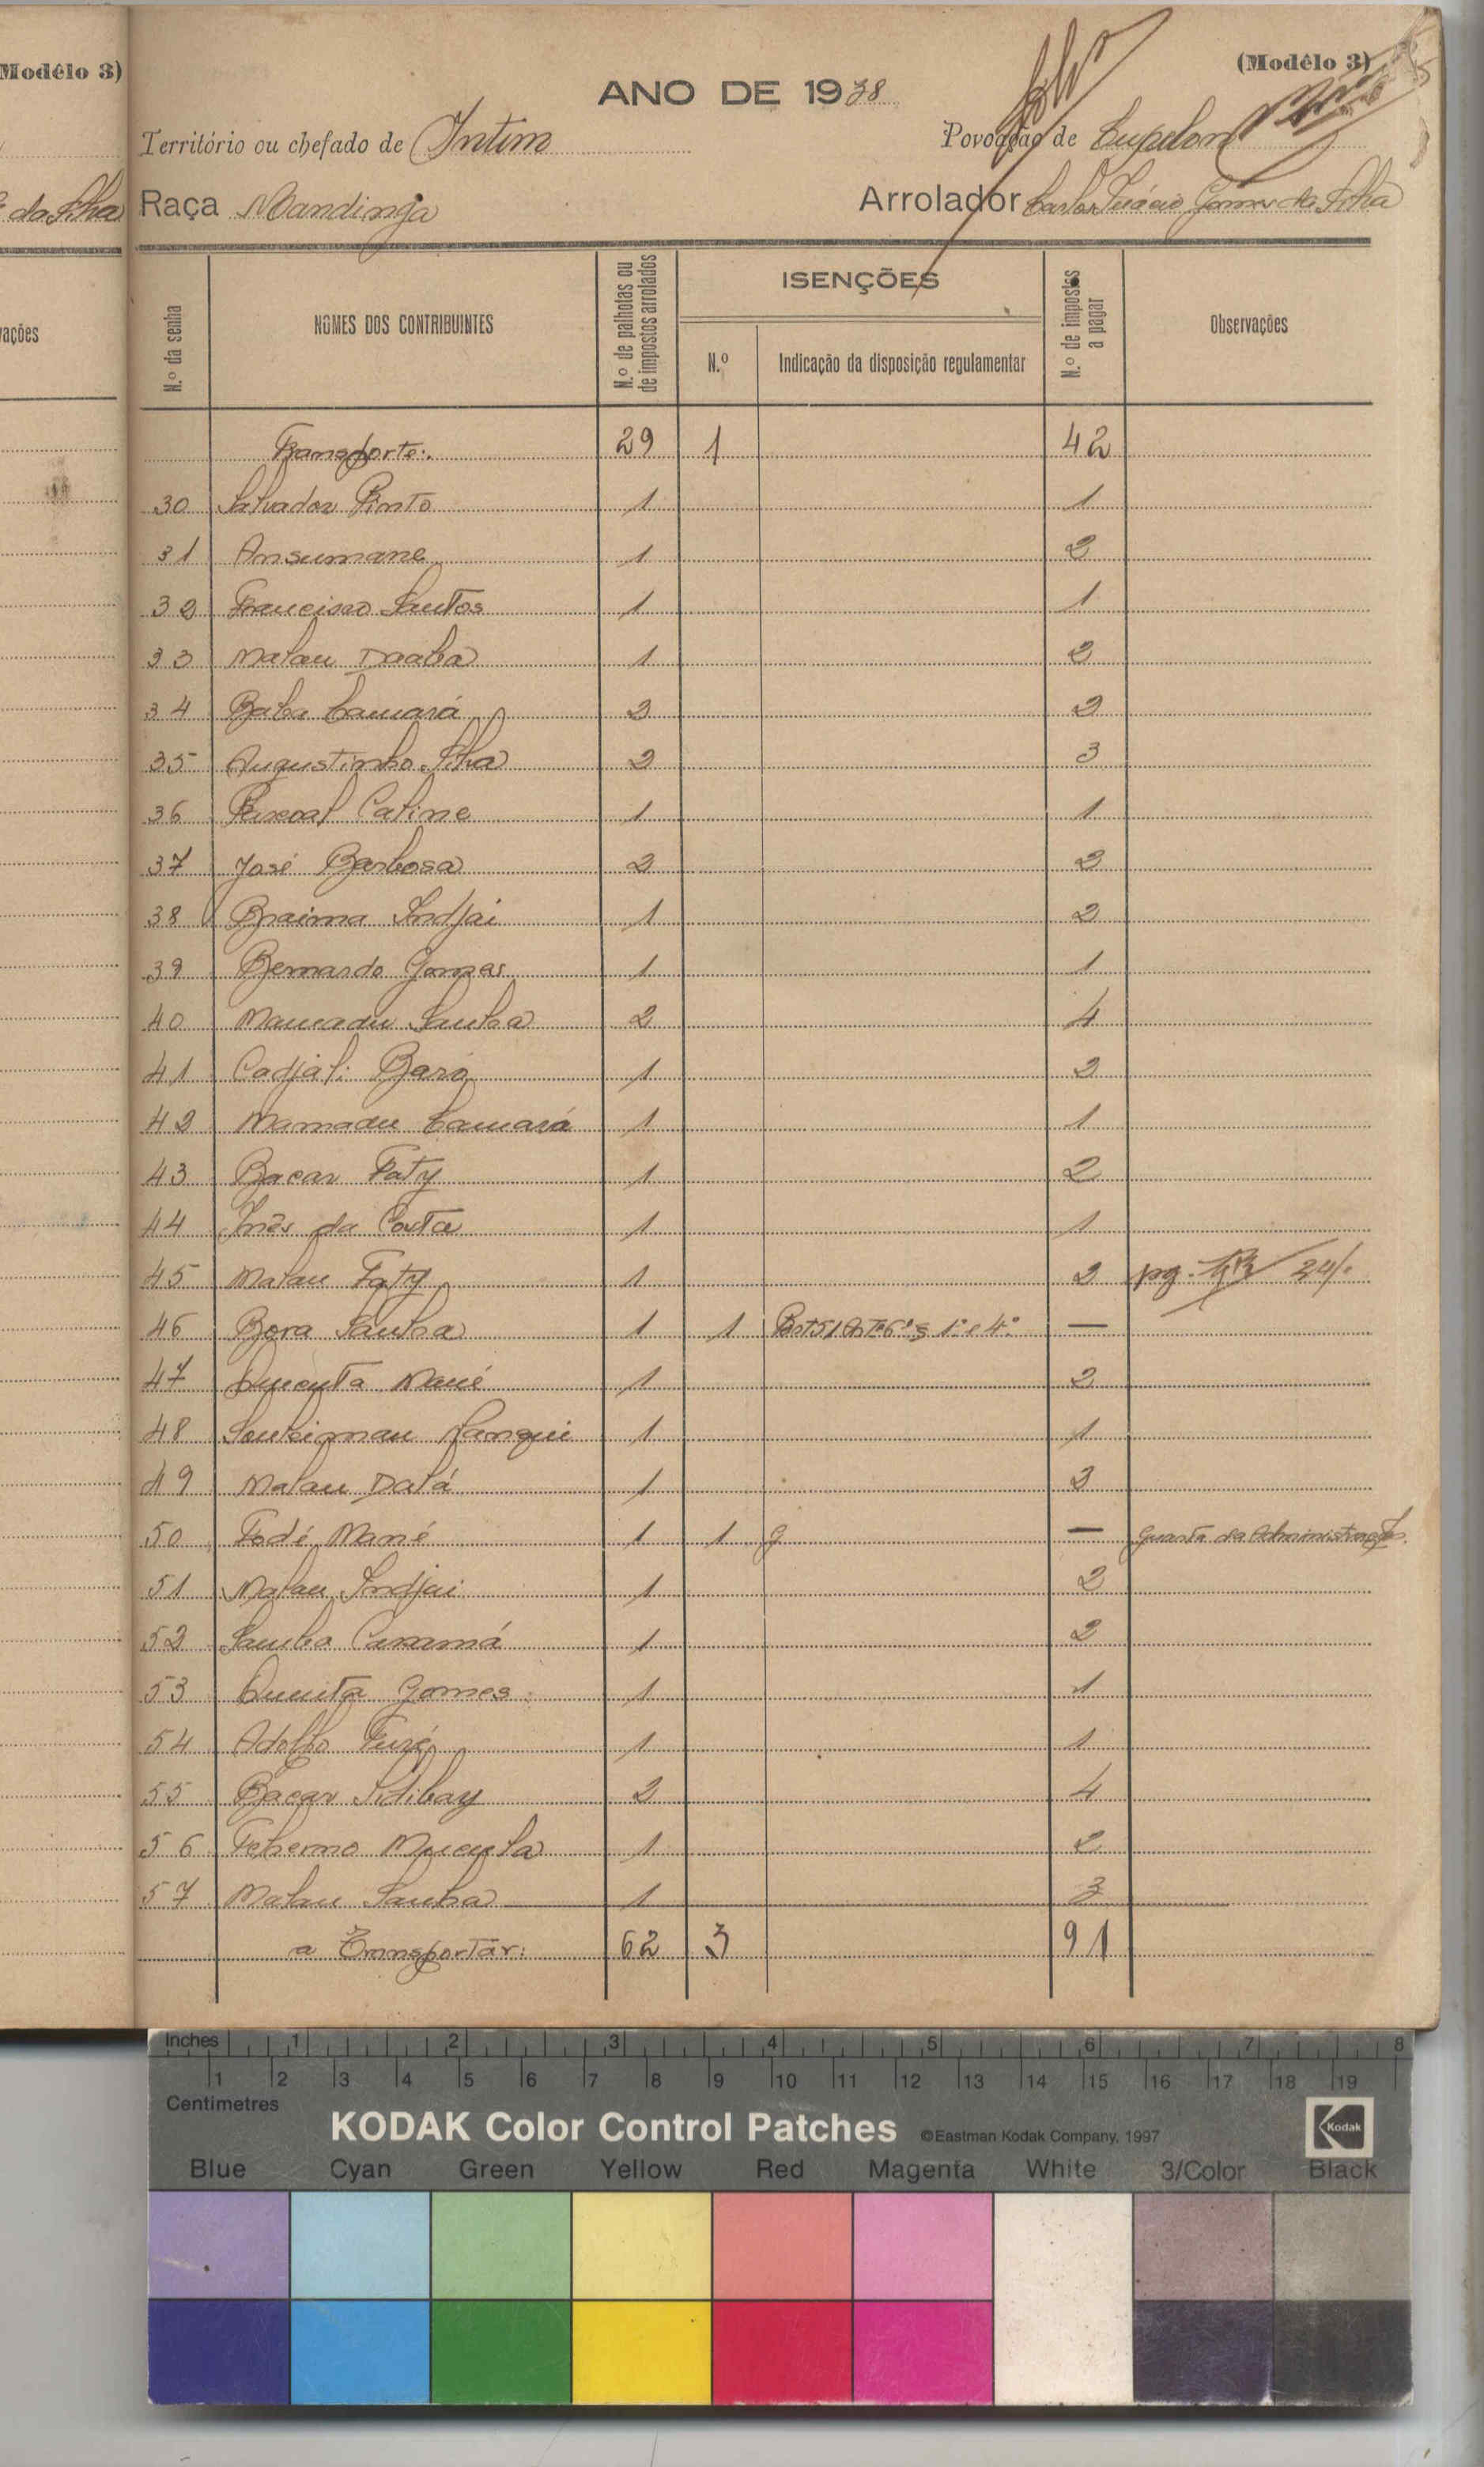 Modêlo 3)
(Modêlo 3)
ANO DE 1938
Território ou chefado de Intim
Povoação de Cupelon
da Silva
Raça Mandinga
Arrolador Carlos Inácio Gomes da Silva
vações
N.º da senha
NOMES DOS CONTRIBUINTES
N.º de palhotas ou de impostos arrolados
ISENÇÕES
N.º
Indicação da disposição regulamentar
N.º de impostos a pagar
Observações
Transporte: 29 1 42
30 Salvador Pinto 1 1
31 Ansumane 1 2
32 Francisco Santos 1 1
33 Malau Daaba 1 2
34 Baba Camará 2 2
35 Augustinho Silva 2 3
36 Pascoal Catine 1 1
37 José Barbosa 2 2
38 Braima Indjai 1 2
39 Bernardo Gomes 1 1
40 Mamadu Sanha 2 4
41 Cadjali Baró 1 2
42 Mamadu Camará 1 1
43 Bacar Faty 1 2
44 Inês da Costa 1 1
45 Malau Faty 1 2 pg. 24/.
46 Bora Sanha 1 1 1.º e 4.º —
47 Quecuta Mané 1 2
48 Souleimau Sanqui 1 1
49 Malau Datá 1 3
50 Fodé Mané 1 1 g — Guarda da Administração
51 Malau Indjai 1 2
52 Samba Camará 1 2
53 Quecuta Gomes 1 1
54 Adolfo Turé 1 1
55 Bacar Sidibay 2 4
56 Tcherno Mucuta 1 2
57 Malau Sanha 1 3
a Transportar: 62 3 91
Inches 1 2 3 4 5 6 7 8
1 2 3 4 5 6 7 8 9 10 11 12 13 14 15 16 17 18 19
Centimetres
KODAK Color Control Patches ©Eastman Kodak Company, 1997 Kodak
Blue Cyan Green Yellow Red Magenta White 3/Color Black